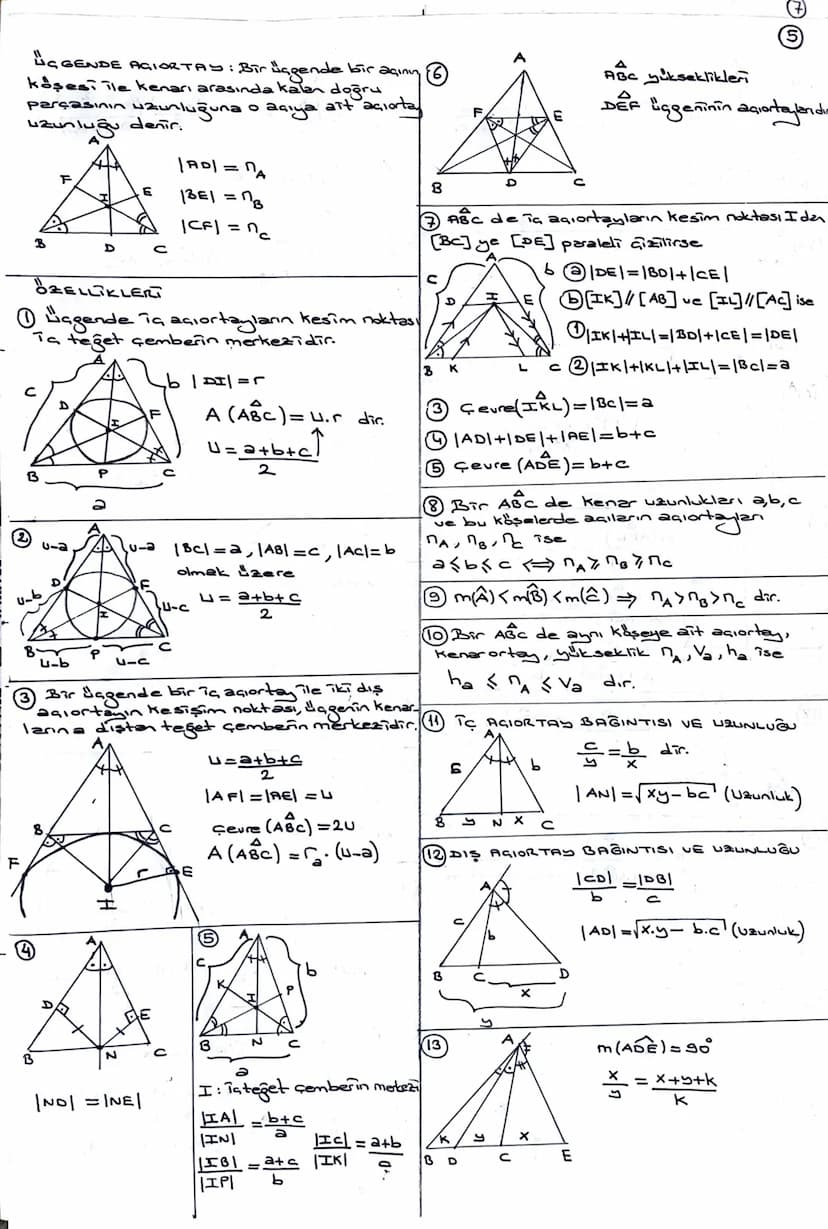 7
5
ÜÇGENDE AÇIORTAY: Bir üçgende bir açının
köşesi ile kenarı arasında kalan doğru
parçasının uzunluğuna o açıya ait açıortay
uzunluğu denir.
A
F
E
I
B
D
C
|AD| = nA
|BE| = nB
|CF| = nC
ÖZELLİKLERİ
① Üçgende iç açıortayların kesim noktası
iç teğet çemberin merkezidir.
A
c
b
D
F
I
B
P
C
a
|DI| = r
A(ABC) = u.r dir.
u = a+b+c / 2
②
A
u-a
u-a
D
F
u-b
u-c
I
B
P
C
u-b
u-c
|BC|=a, |AB|=c, |AC|=b
olmak üzere
u = a+b+c / 2
③ Bir üçgende bir iç açıortay ile iki dış
açıortayın kesişim noktası, üçgenin kenar-
larına dıştan teğet çemberin merkezidir.
A
B
C
F
r
E
I
u = a+b+c / 2
|AF| = |AE| = u
Çevre(ABC) = 2u
A(ABC) = ra.(u-a)
④
A
D
E
B
N
C
|ND| = |NE|
⑤
A
c
b
K
P
I
B
N
C
a
I: iç teğet çemberin merkezi
|IA| / |IN| = b+c / a
|IB| / |IP| = a+c / b
|IC| / |IK| = a+b / c
⑥
A
F
E
B
D
C
ABC yükseklikleri
DEF üçgeninin açıortaylarıdı
⑦ ABC de iç açıortayların kesim noktası I dan
[BC] ye [DE] paraleli çizilirse
A
c
b
D
I
E
B
K
L
C
ⓐ |DE|=|BD|+|CE|
ⓑ [IK]//[AB] ve [IL]//[AC] ise
① |IK|+|IL|=|BD|+|CE|=|DE|
② |IK|+|KL|+|IL|=|BC|=a
③ Çevre(IKL)=|BC|=a
④ |AD|+|DE|+|AE|=b+c
⑤ Çevre(ADE)=b+c
⑧ Bir ABC de kenar uzunlukları a,b,c
ve bu köşelerde açıların açıortayları
nA, nB, nC ise
a ≤ b ≤ c ⟺ nA ≥ nB ≥ nC
⑨ m(A) < m(B) < m(C) ⇒ nA > nB > nC dir.
⑩ Bir ABC de aynı köşeye ait açıortay,
kenarortay, yükseklik nA, Va, ha ise
ha ≤ nA ≤ Va dır.
⑪ İÇ AÇIORTAY BAĞINTISI VE UZUNLUĞU
A
b
B
y
N
x
C
c/y = b/x dir.
|AN| = √xy-bc (Uzunluk)
⑫ DIŞ AÇIORTAY BAĞINTISI VE UZUNLUĞU
A
c
b
B
C
D
x
y
|CD| / b = |DB| / c
|AD| = √x.y - b.c (Uzunluk)
⑬
A
K
y
x
B
D
C
E
m(ADE) = 90°
x/y = x+y+k / k